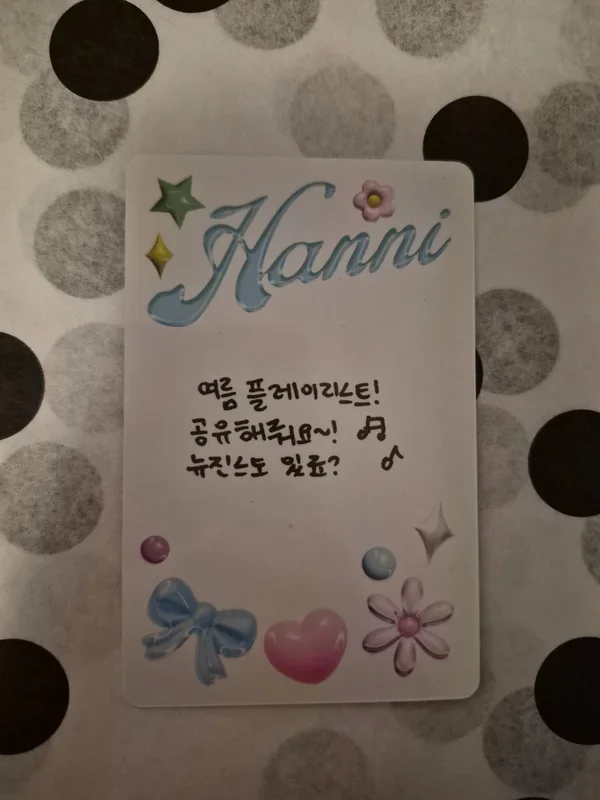 Hanni
여름 플레이리스트!
공유해줘요~!
뉴진스도 있죠?